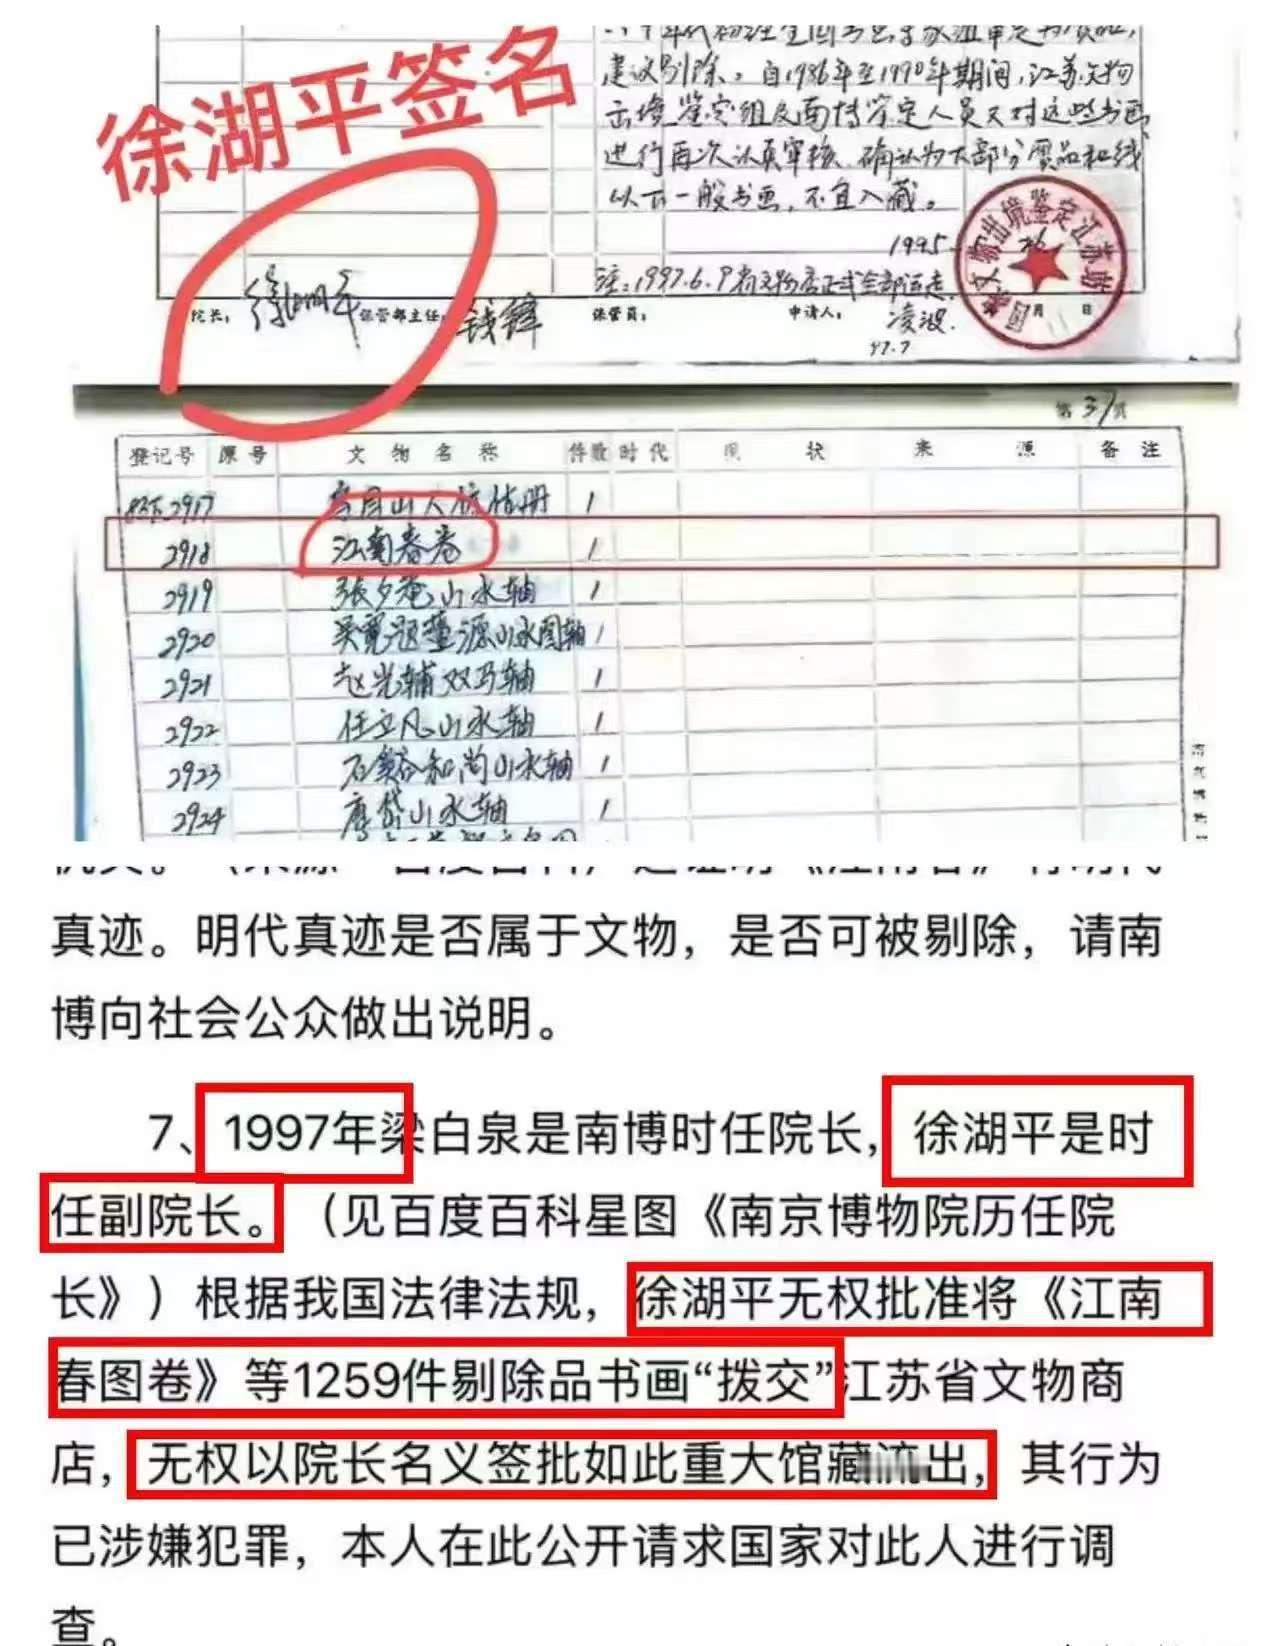 徐湖平签名
建议剔除。自1986年至1990年期间,江苏文物
出境鉴定组及南博鉴定人员又对这些书画
进行再次认真审核,确认为大部分赝品和线
以下一般书画,不宜入藏。
1995
国家文物出境鉴定江苏站
月 日
注:1997.6.9
院长: 徐湖平 保管部主任: 钱锋 保管员: 申请人: 凌波.
97.7
第37页
登记号 原号 文物名称 件数 时代 现状 来源 备注
2917 1
2918 江南春卷 1
2919 张夕庵山水轴 1
2920 吴宽题董源山水图轴 1
2921 赵光辅双马轴 1
2922 任立凡山水轴 1
2923 石溪和尚山水轴 1
2924 山水轴 1
真迹。明代真迹是否属于文物,是否可被剔除,请南
博向社会公众做出说明。
7、1997年梁白泉是南博时任院长,徐湖平是时
任副院长。(见百度百科星图《南京博物院历任院
长》)根据我国法律法规,徐湖平无权批准将《江南
春图卷》等1259件剔除品书画“拨交”江苏省文物商
店,无权以院长名义签批如此重大馆藏流出,其行为
已涉嫌犯罪,本人在此公开请求国家对此人进行调
查。